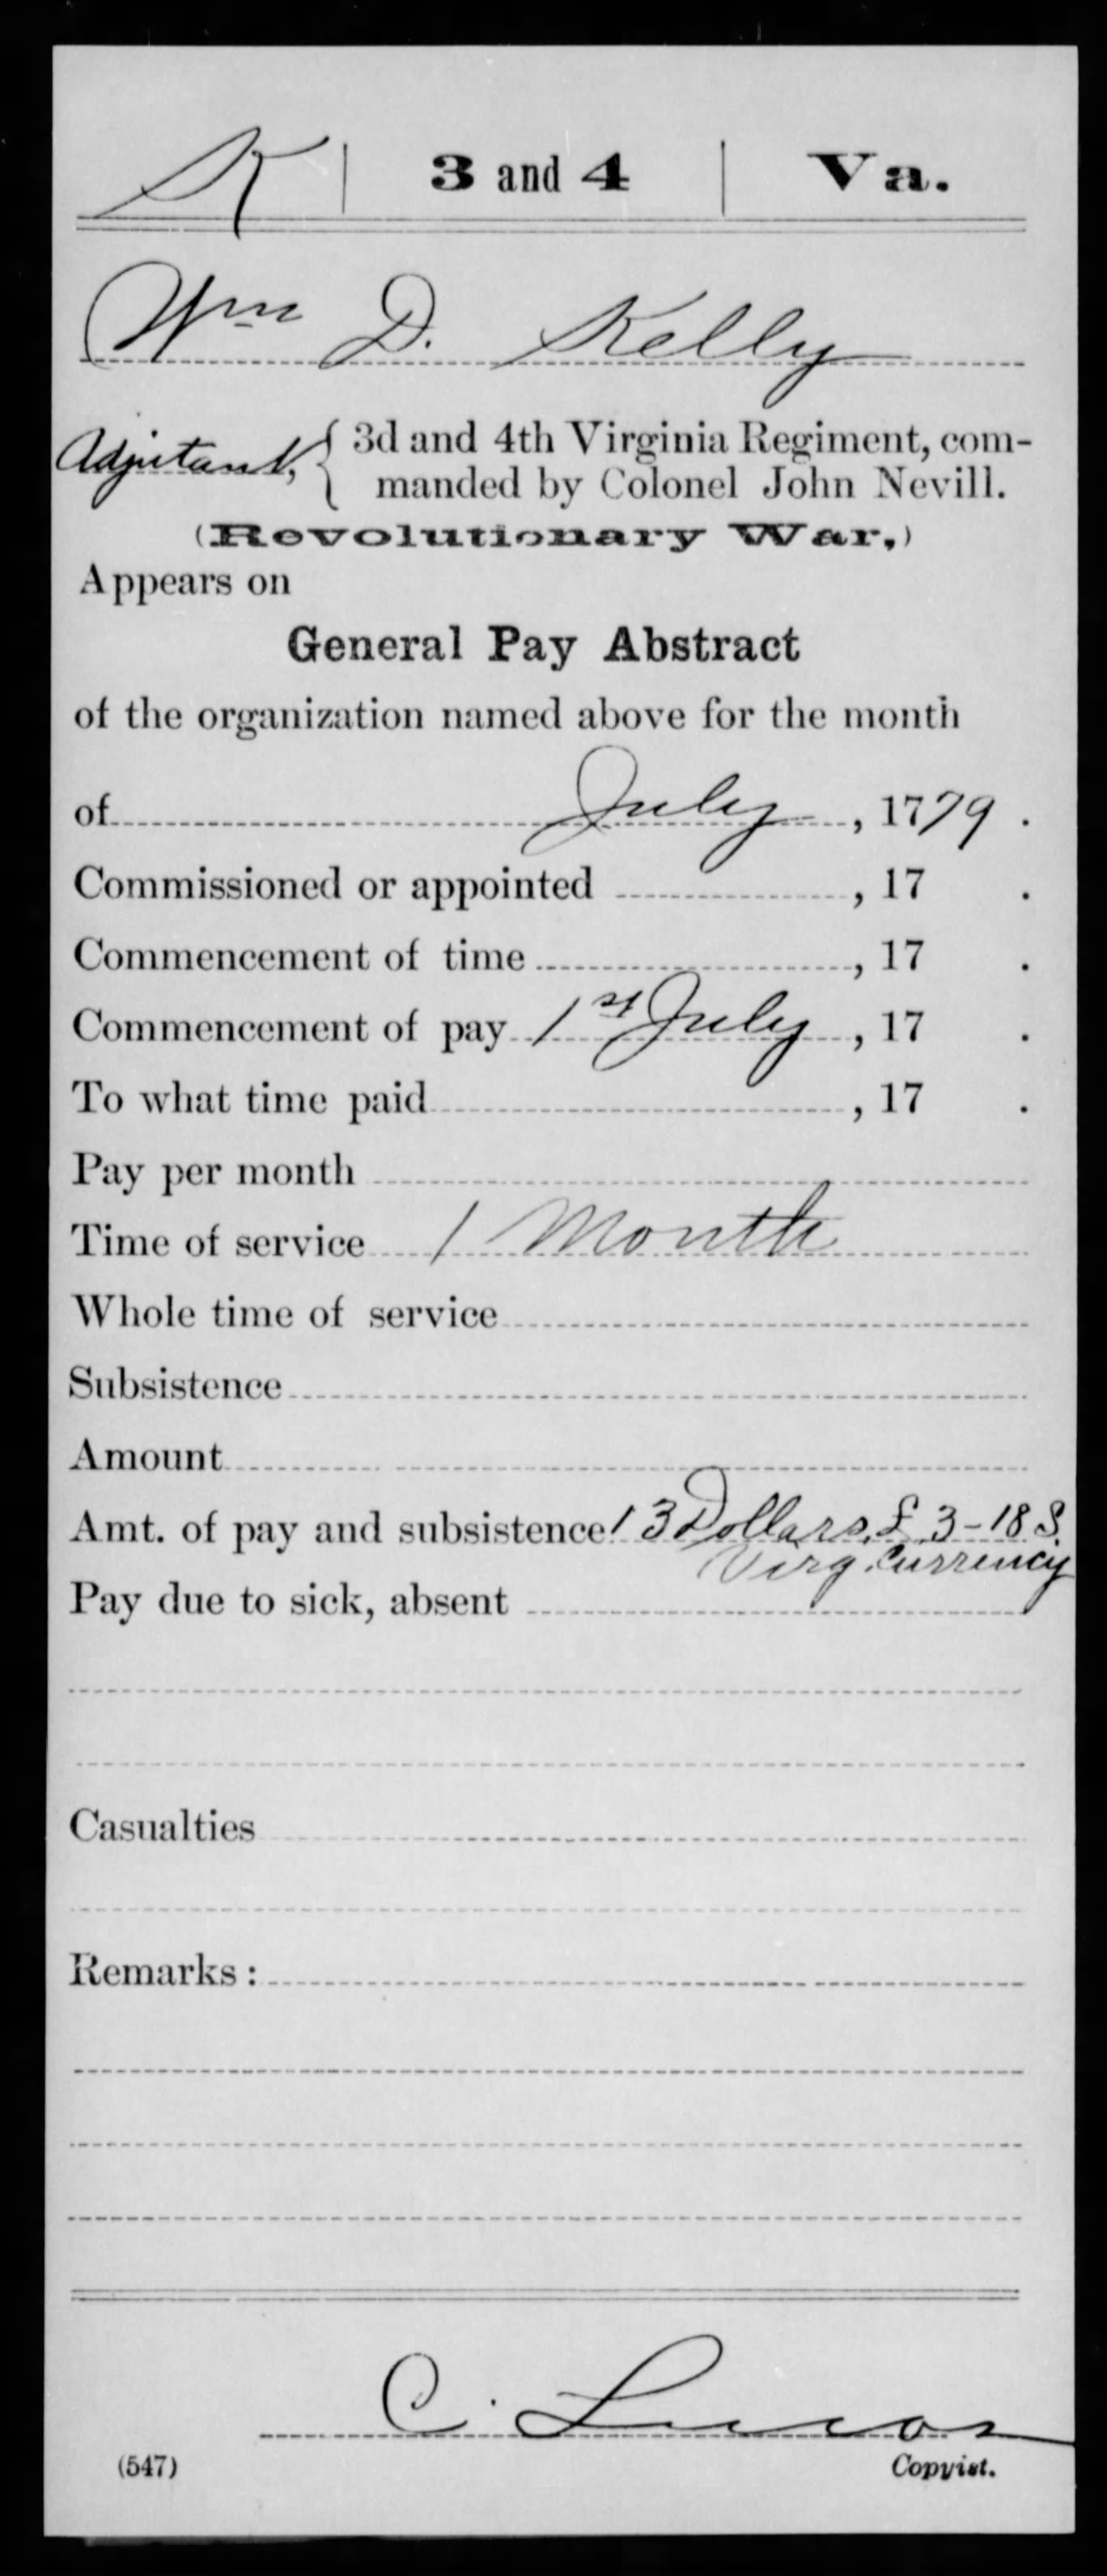 K | 3 and 4 | Va.
Wm D. Kelly
Adjutant, { 3d and 4th Virginia Regiment, com-
manded by Colonel John Nevill.
(Revolutionary War.)
Appears on
General Pay Abstract
of the organization named above for the month
of July, 1779.
Commissioned or appointed , 17 .
Commencement of time , 17 .
Commencement of pay 1st July, 17 .
To what time paid , 17 .
Pay per month
Time of service 1 Month
Whole time of service
Subsistence
Amount
Amt. of pay and subsistence 13 Dollars, £ 3-18 S.
Virg. Currency
Pay due to sick, absent
Casualties
Remarks:
C. Lucas
(547) Copyist.